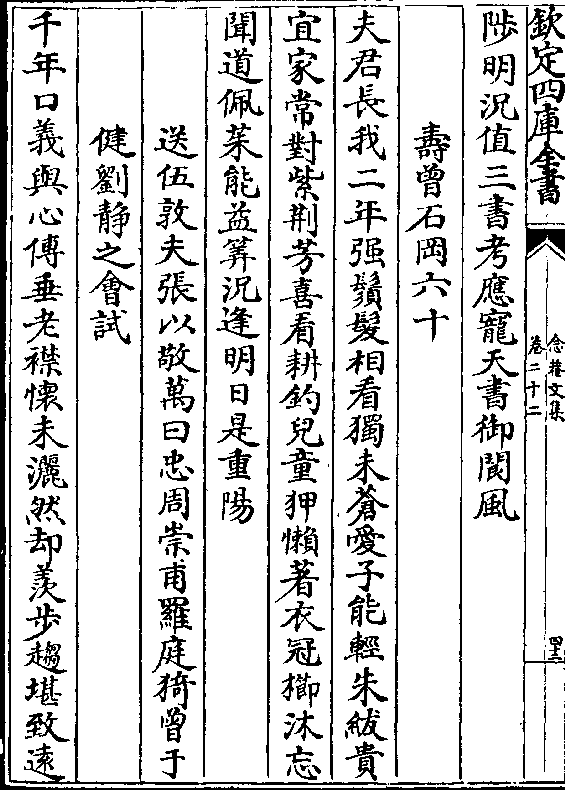 欽定四庫全書
念菴文集
卷二十二
四十三
陟明況值三書考應寵天書御閬風
壽曾石岡六十
夫君長我二年强鬚髮相看獨未蒼愛子能輕朱紱貴
宜家常對紫荆芳喜看耕釣兒童狎懶著衣冠櫛沐忘
聞道佩茱能益筭況逢明日是重陽
送伍敦夫張以敬萬曰忠周崇甫羅庭猗曾于
健劉静之會試
千年口義與心傳垂老襟懷未灑然却羨步趨堪致遠